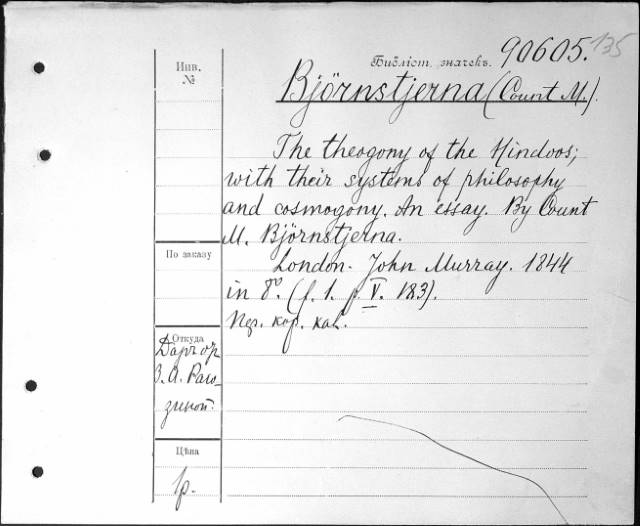 Инв.
№
Библіот. значекъ. 90605. 135
Björnstjerna (Count M.).
The theogony of the Hindoos;
with their systems of philosophy
and cosmogony. An essay. By Count
M. Björnstjerna.
London. John Murray. 1844
in 8º. (f. 1. p. V. 183).
кор. кал.
По заказу
Откуда
Даръ от
З. А. Раго-
зиной.
Цѣна
1р.